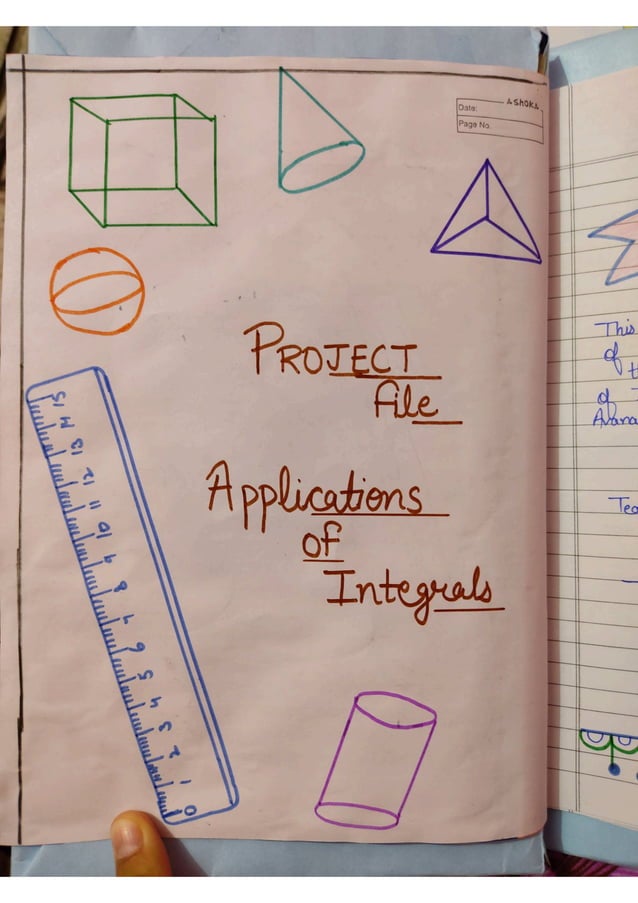 ASHOKA
Date:
Page No.
PROJECT
file
Applications
of
Integrals
15
14
13
12
11
10
9
8
7
6
5
4
3
2
1
0
This
of
t
of